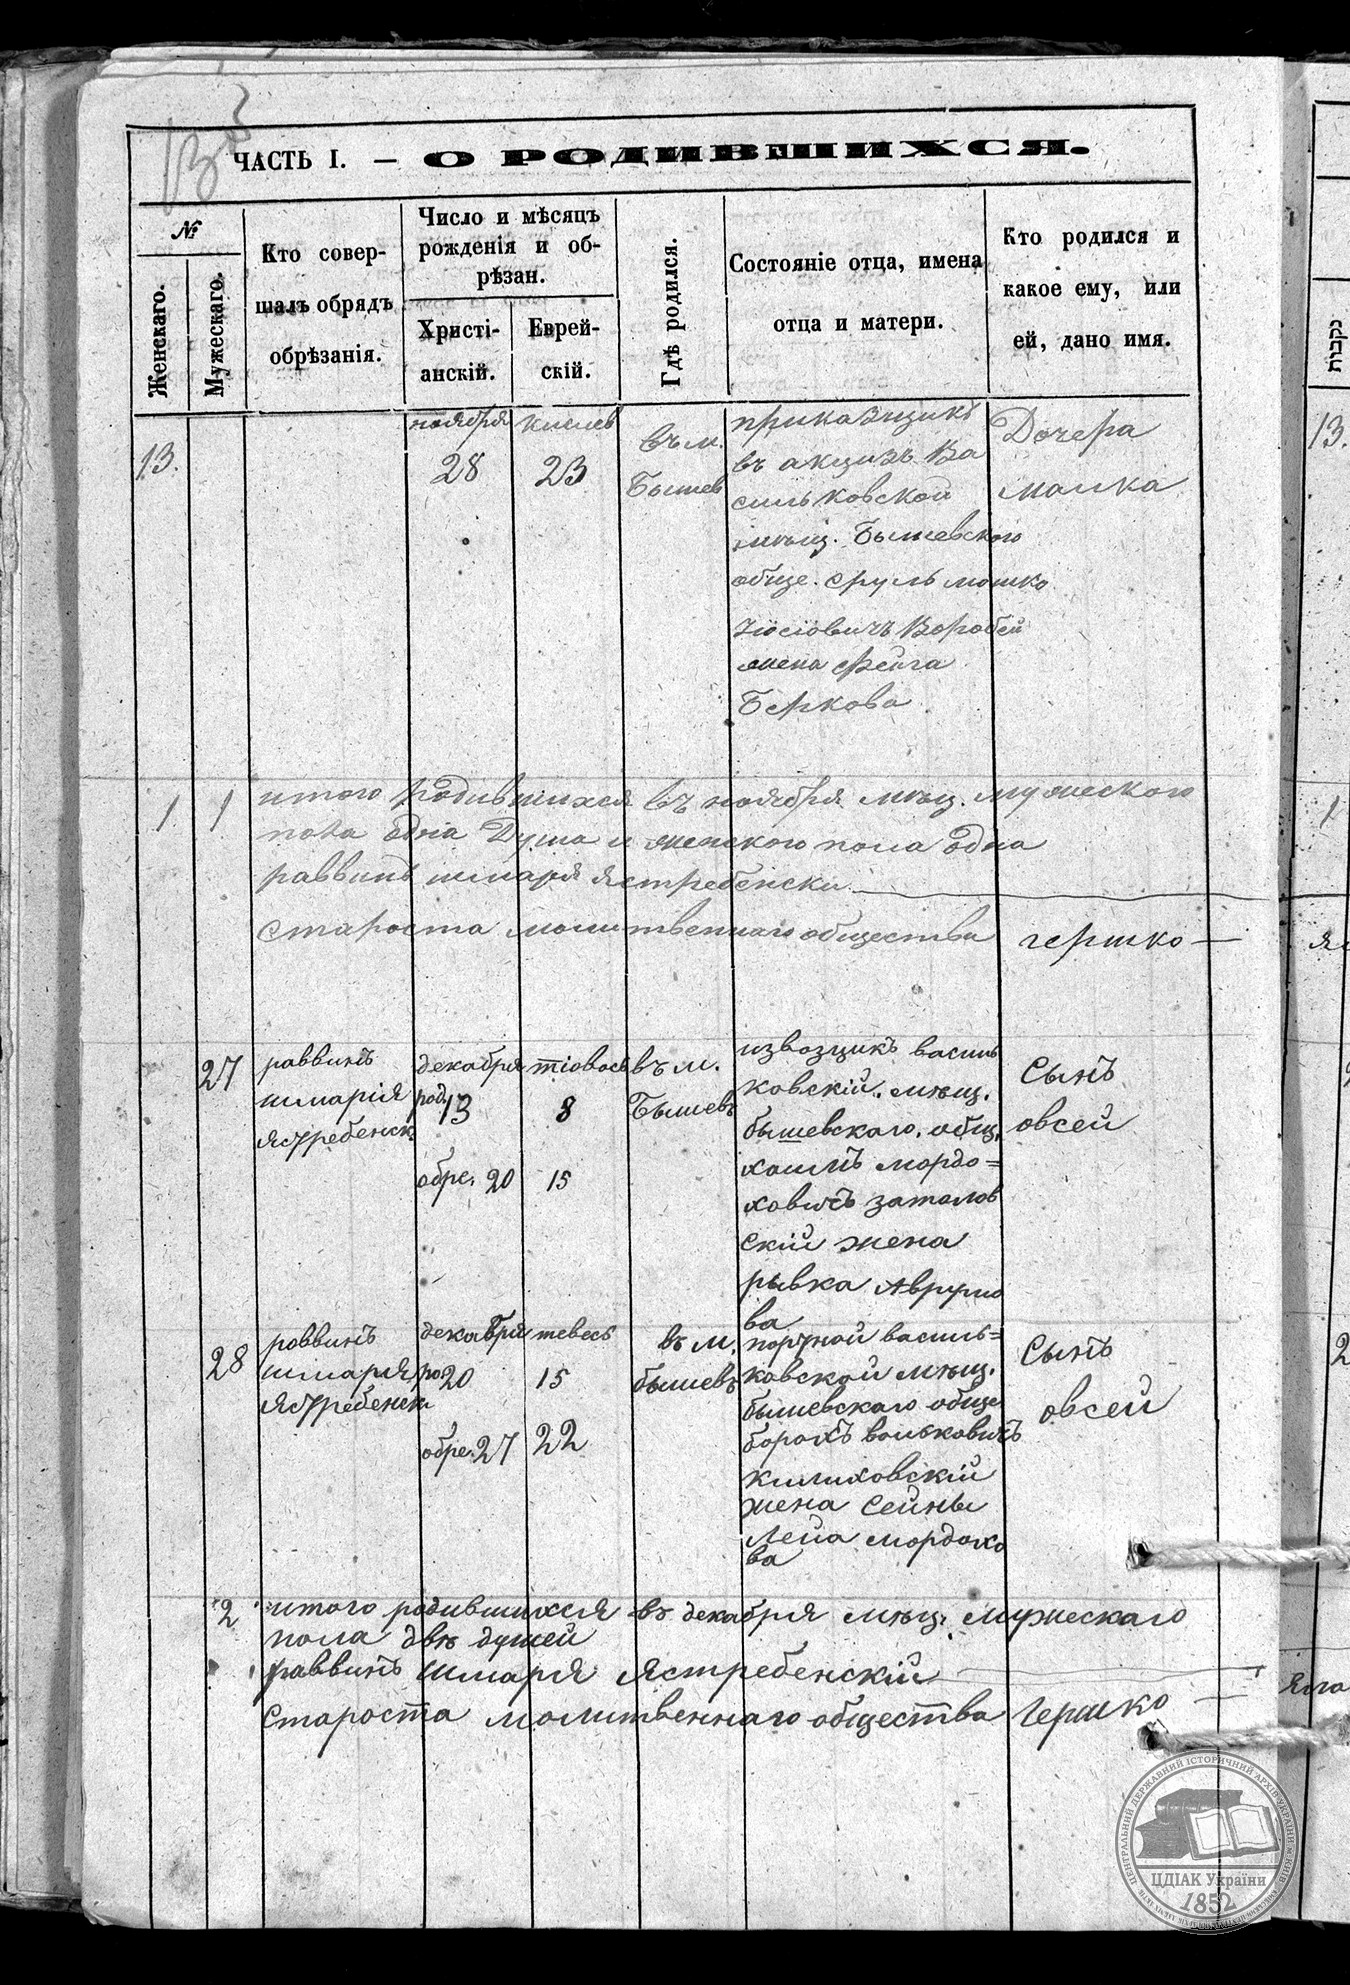 ЧАСТЬ I. — О РОДИВШИХСЯ.
№
Женскаго.
Мужескаго.
Кто совер-
шалъ обрядъ
обрѣзанія.
Число и мѣсяцъ
рожденія и об-
рѣзан.
Христі-
анскій.
Еврей-
скій.
Гдѣ родился.
Состояніе отца, имена
отца и матери.
Кто родился и
какое ему, или
ей, дано имя.
נקבות
13.
ноября
28
кислев
23
въ м.
Бышев
приказщикъ
въ акцизъ Ва
сильковской
мѣщ. Бышевского
обще. сруль мошко
Іосіовичъ Воробей
жена Фейга
Беркова
Дочера
малка
13.
1 1 итого родившихся въ ноября мѣц. мужеского
пола одна Душа и женского пола одна
раввинъ шмаря Ястребенски
староста молитвеннаго общества гершко —
1
27
раввинъ
шмарія
Ястребенск
декабря
род. 13
обре. 20
тіовось
8
15
въ м.
Бышевъ
извозщикъ василь
ковскій. мѣщ.
бышевскаго. общ.
хаимъ мордо=
ховичъ
скій жена
рывка Аврумо
ва
Сынъ
овсей
28
раввинъ
шмаря
Ястребенск
декабря
ро 20
обре. 27
тевесь
15
22
въ м.
бышевъ
портной василь=
ковской мѣщ.
бышевскаго обще
борохъ вольковичъ
килиховскій
жена Сейны
Лейа мордохо
ва
Сынъ
овсей
2 итого родившихся въ декабря мѣц. мужескаго
пола двѣ душей
раввинъ Шмаря Ястребенскій
Староста молитвеннаго общества Гершко —
ЦЕНТРАЛЬНИЙ ДЕРЖАВНИЙ ІСТОРИЧНИЙ АРХІВ УКРАЇНИ
ЦДІАК України
1852